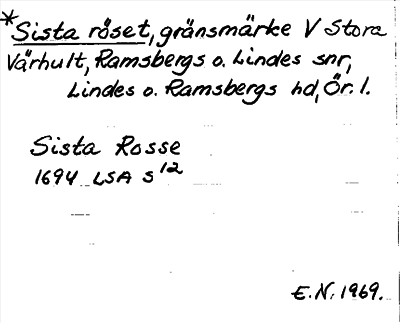 *Sista röset, gränsmärke V Stora
Värhult, Ramsbergs o. Lindes snr,
Lindes o. Ramsbergs hd, Ör. l.
Sista Rosse
1694 LSA S 12
E.N. 1969.